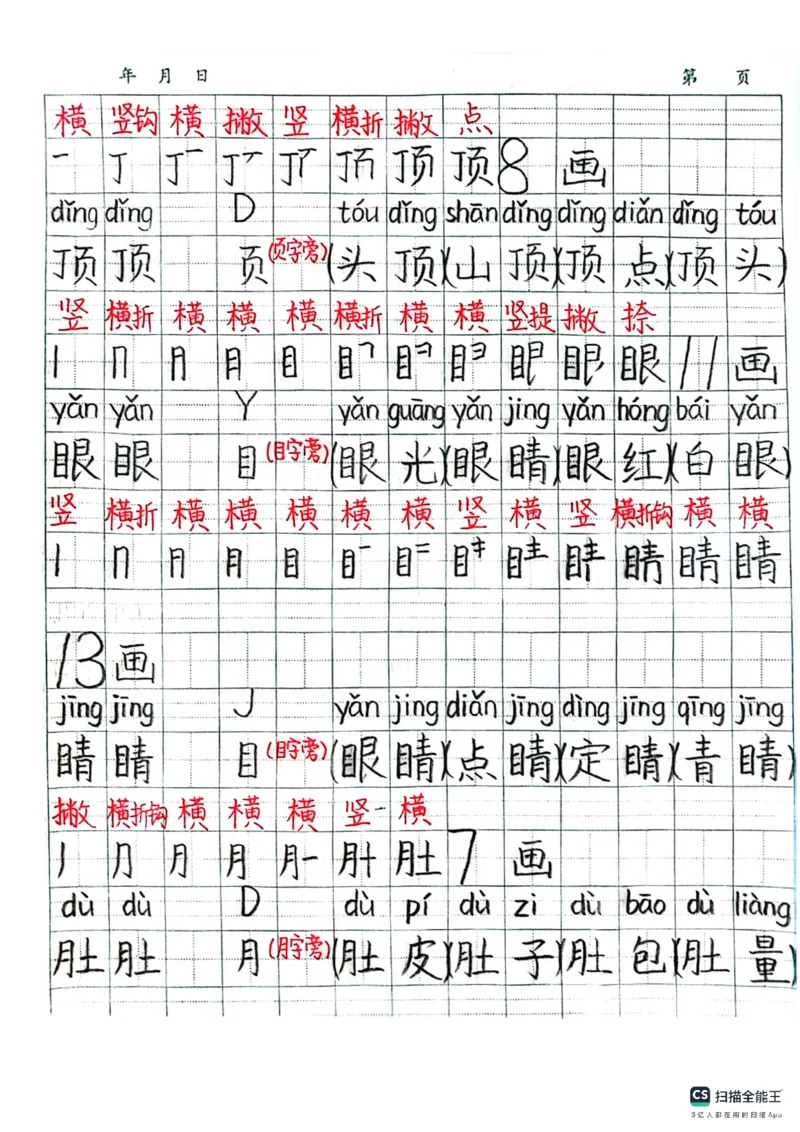 年 月 日 第 页
横 竖钩 横 撇 竖 横折 撇 点
顶 8 画
dǐng dǐng D tóu dǐng shān dǐng dǐng diǎn dǐng tóu
顶 顶 页(页字旁)(头 顶)(山 顶)(顶 点)(顶 头)
竖 横折 横 横 横 横折 横 横 竖提 撇 捺
眼 11 画
yǎn yǎn Y yǎn guāng yǎn jing yǎn hóng bái yǎn
眼 眼 目(目字旁)(眼 光)(眼 睛)(眼 红)(白 眼)
竖 横折 横 横 横 横 横 竖 横 竖 横折钩 横 横
睛
13 画
jīng jīng J yǎn jing diǎn jīng dìng jīng qīng jīng
睛 睛 目(目字旁)(眼 睛)(点 睛)(定 睛)(青 睛)
撇 横折钩 横 横 横 竖 横
肚 7 画
dù dù D dù pí dù zi dù bāo dù liàng
肚 肚 月(月字旁)(肚 皮)(肚 子)(肚 包)(肚 量)
CS 扫描全能王
3亿人都在用的扫描App